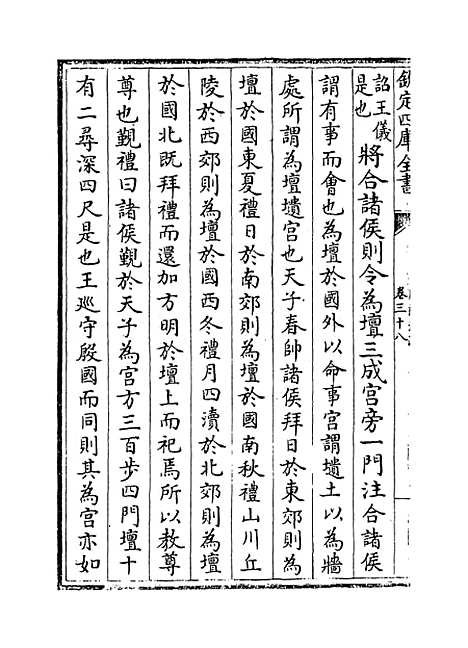 欽定四庫全書
卷三十八
詔王儀
是也 將合諸侯則令為壇三成宫旁一門注合諸侯
謂有事而會也為壇於國外以命事宫謂壝土以為牆
處所謂為壇壝宫也天子春帥諸侯拜日於東郊則為
壇於國東夏禮日於南郊則為壇於國南秋禮山川丘
陵於西郊則為壇於國西冬禮月四瀆於北郊則為壇
於國北既拜禮而還加方明於壇上而祀焉所以教尊
尊也覲禮曰諸侯覲於天子為宫方三百步四門壇十
有二尋深四尺是也王廵守殷國而同則其為宫亦如